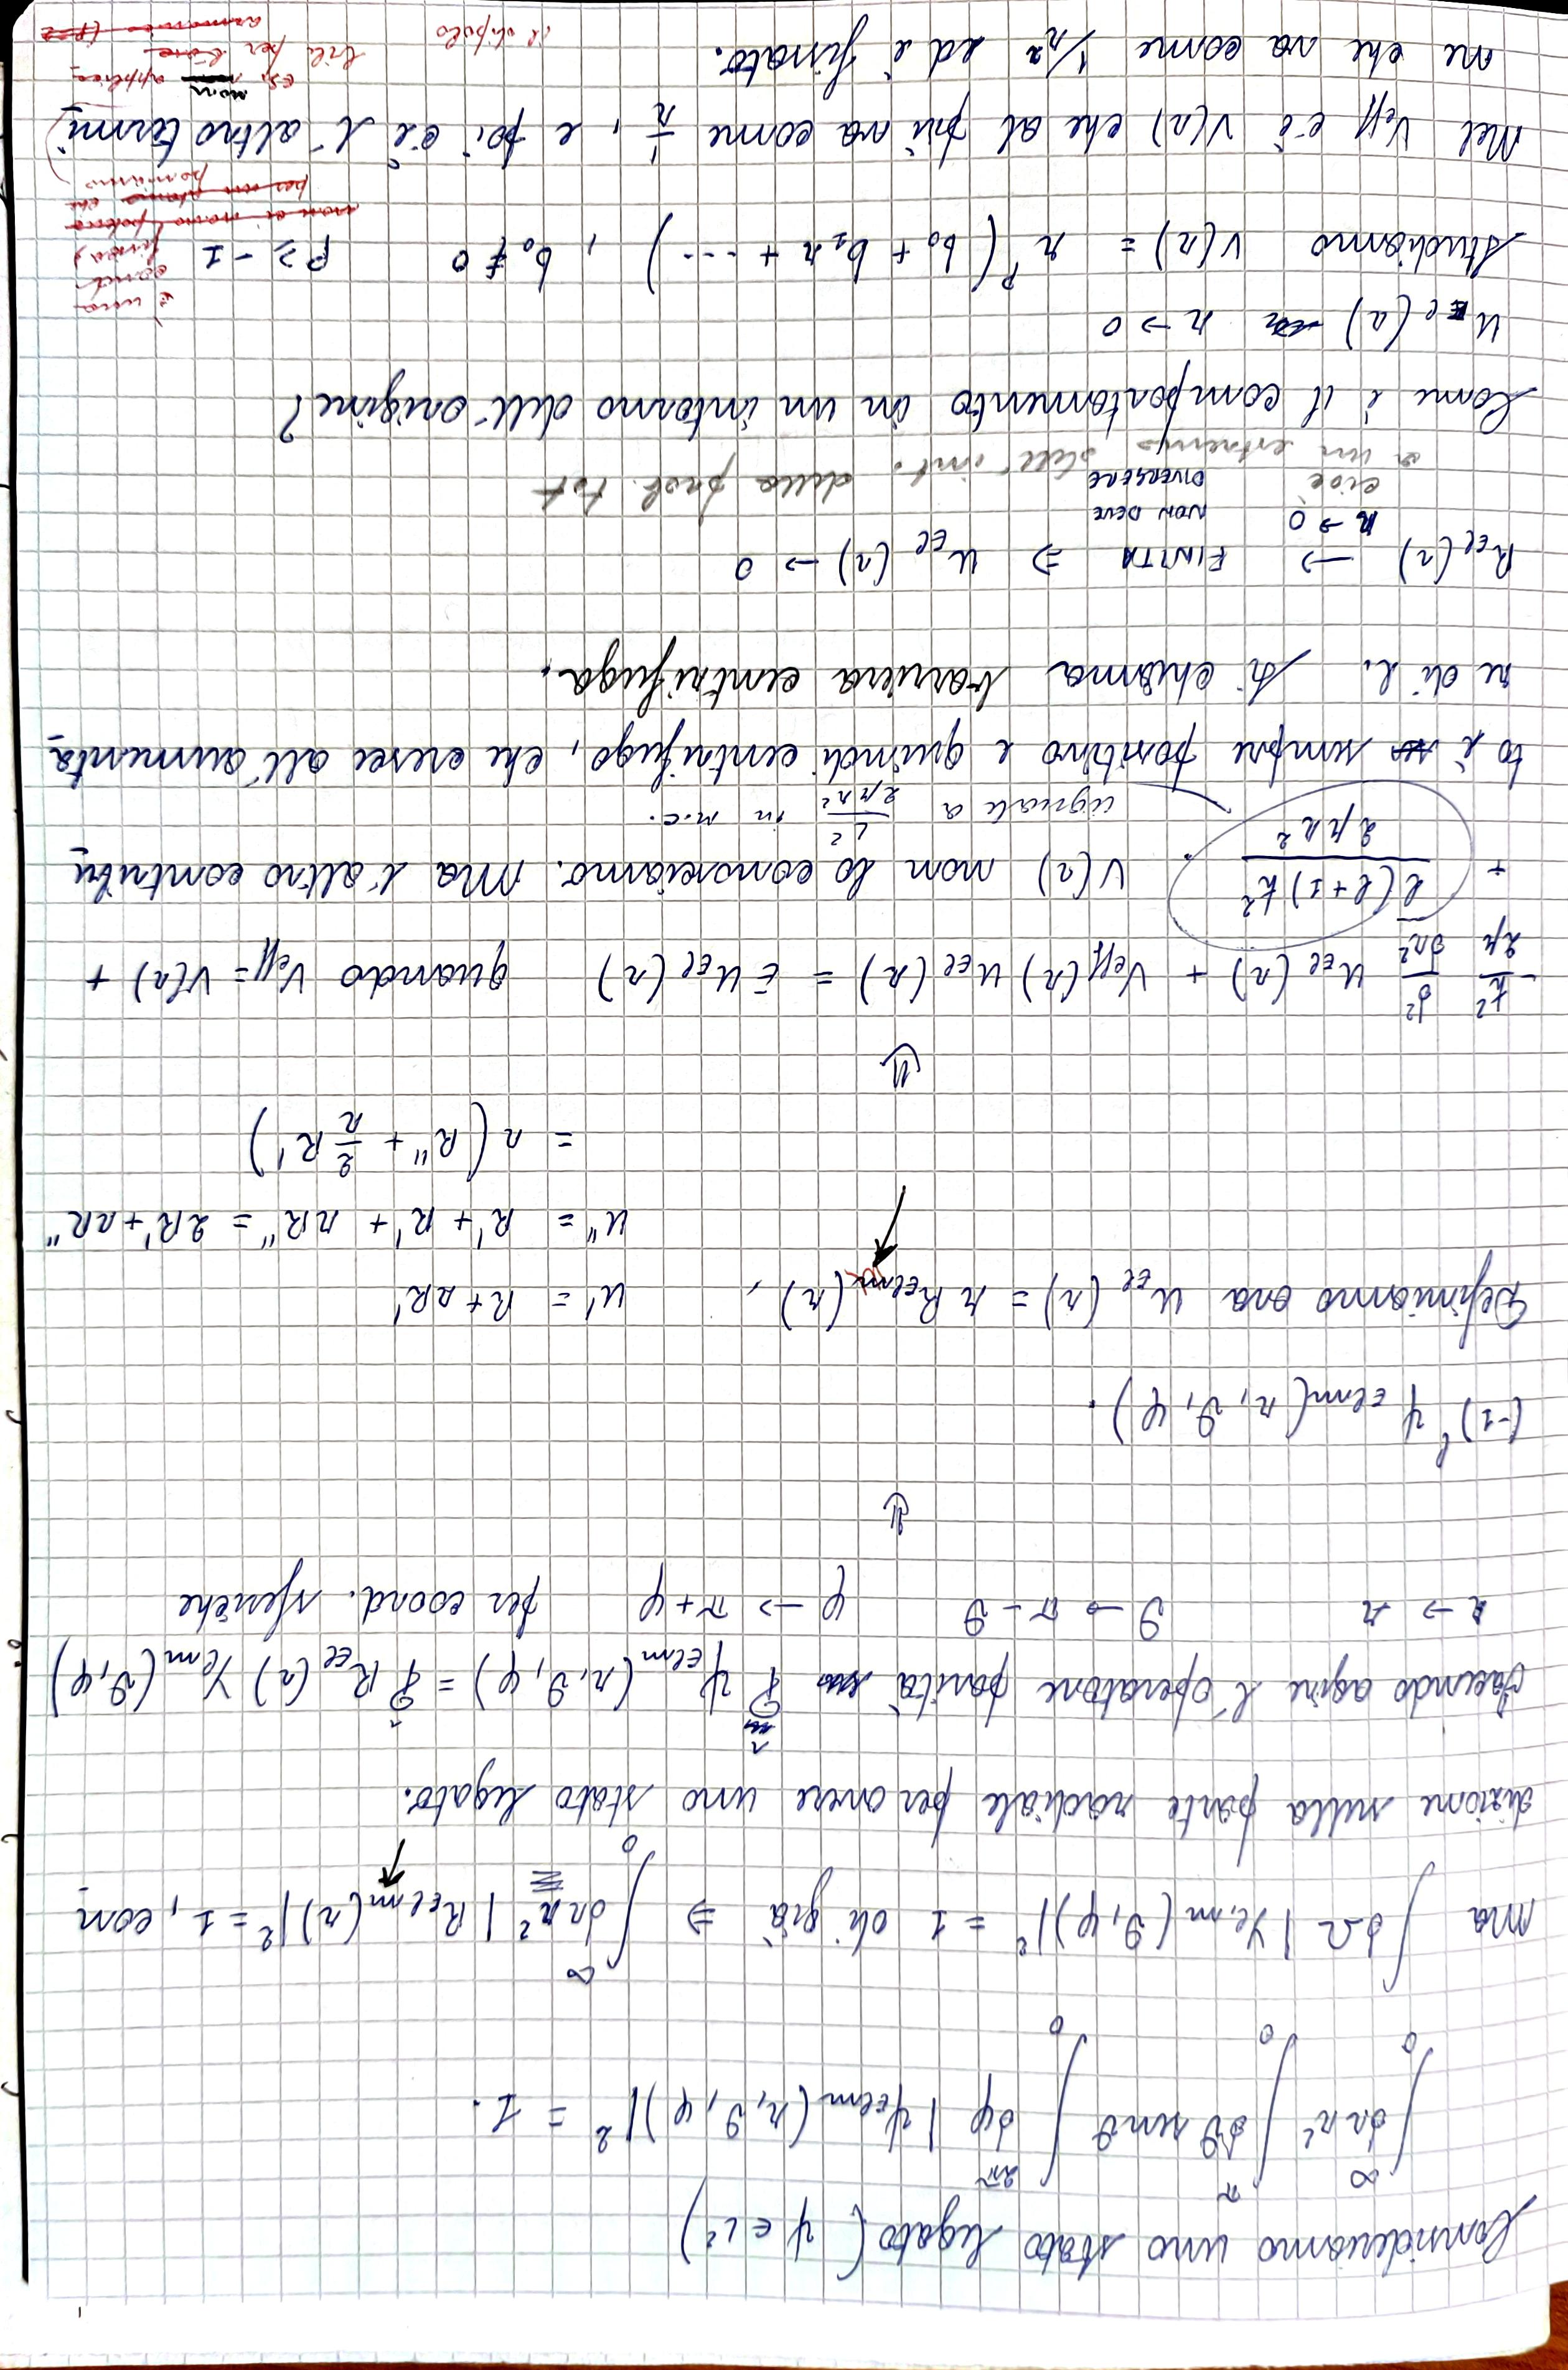 Consideriamo uno stato legato ( ψ ∈ L²)
∫₀^∞ dr r² ∫₀^π dϑ senϑ ∫₀^2π dφ |ψ_Elm (r, ϑ, φ)|² = 1.
Ma ∫ dΩ |Y_l,m (ϑ, φ)|² = 1 di già ⇒ ∫₀^∞ dr r² |R_Elm (r)|² = 1, con
dizione sulla parte radiale per avere uno stato legato.
Facendo agire l'operatore parità P̂ ψ_Elm (r, ϑ, φ) = P̂ R_El (r) Y_lm (ϑ, φ)
r → r ϑ → π - ϑ φ → π + φ per coord. sferiche
⇓
(-1)^l ψ_Elm (r, ϑ, φ).
Definiamo ora u_El (r) = r R_Elm (r), u' = R + rR'
u'' = R' + R' + rR'' = 2R' + rR''
= r (R'' + 2/r R')
⇓
- ħ²/2μ d²/dr² u_El (r) + V_eff (r) u_El (r) = E u_El (r) quando V_eff = V(r) +
+ l(l+1)ħ²/2μr² . V(r) non lo conosciamo. Ma l'altro contribu
uguale a L²/2μr² in m.c.
to è sempre positivo e quindi centrifugo, che cresce all'aumenta
re di l. Si chiama barriera centrifuga.
R_El (r) → FINITA ⇒ u_El (r) → 0
r → 0 NON DEVE
cioè DIVERGERE
a un estremo dell'int. della prob. tot
Come è il comportamento in un intorno dell'origine?
u_El (r) r → 0
Studiamo V(r) = r^p (b₀ + b₁r + ···) , b₀ ≠ 0 p ≥ -1
è una
cond.
fisica,
che
poniamo
Nel V_eff c'è V(r) che al più va come 1/r, e poi c'è l'altro termi
ne che va come 1/r² ed è fissato.
es. non applica
bile per
il dipolo